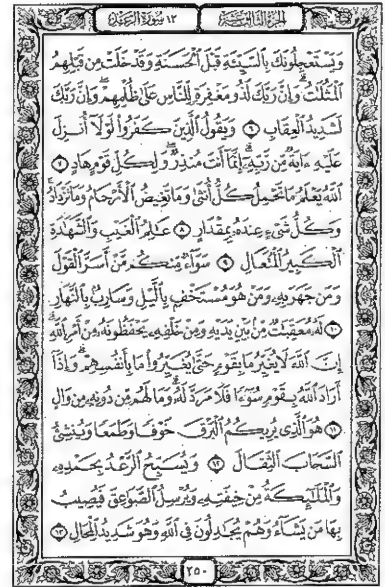 الجزء الثالث عشر ١٣ سورة الرعد
وَيَسْتَعْجِلُونَكَ بِالسَّيِّئَةِ قَبْلَ الْحَسَنَةِ وَقَدْ خَلَتْ مِن قَبْلِهِمُ
الْمَثُلَاتُ وَإِنَّ رَبَّكَ لَذُو مَغْفِرَةٍ لِّلنَّاسِ عَلَىٰ ظُلْمِهِمْ وَإِنَّ رَبَّكَ
لَشَدِيدُ الْعِقَابِ ٦ وَيَقُولُ الَّذِينَ كَفَرُوا لَوْلَا أُنزِلَ
عَلَيْهِ ءَايَةٌ مِّن رَّبِّهِ إِنَّمَا أَنتَ مُنذِرٌ وَلِكُلِّ قَوْمٍ هَادٍ ٧
اللَّهُ يَعْلَمُ مَا تَحْمِلُ كُلُّ أُنثَىٰ وَمَا تَغِيضُ الْأَرْحَامُ وَمَا تَزْدَادُ
وَكُلُّ شَيْءٍ عِندَهُ بِمِقْدَارٍ ٨ عَالِمُ الْغَيْبِ وَالشَّهَادَةِ
الْكَبِيرُ الْمُتَعَالِ ٩ سَوَاءٌ مِّنكُم مَّنْ أَسَرَّ الْقَوْلَ
وَمَن جَهَرَ بِهِ وَمَنْ هُوَ مُسْتَخْفٍ بِاللَّيْلِ وَسَارِبٌ بِالنَّهَارِ
١٠ لَهُ مُعَقِّبَاتٌ مِّن بَيْنِ يَدَيْهِ وَمِنْ خَلْفِهِ يَحْفَظُونَهُ مِنْ أَمْرِ اللَّهِ
إِنَّ اللَّهَ لَا يُغَيِّرُ مَا بِقَوْمٍ حَتَّىٰ يُغَيِّرُوا مَا بِأَنفُسِهِمْ وَإِذَا
أَرَادَ اللَّهُ بِقَوْمٍ سُوءًا فَلَا مَرَدَّ لَهُ وَمَا لَهُم مِّن دُونِهِ مِن وَالٍ
١١ هُوَ الَّذِي يُرِيكُمُ الْبَرْقَ خَوْفًا وَطَمَعًا وَيُنشِئُ
السَّحَابَ الثِّقَالَ ١٢ وَيُسَبِّحُ الرَّعْدُ بِحَمْدِهِ
وَالْمَلَائِكَةُ مِنْ خِيفَتِهِ وَيُرْسِلُ الصَّوَاعِقَ فَيُصِيبُ
بِهَا مَن يَشَاءُ وَهُمْ يُجَادِلُونَ فِي اللَّهِ وَهُوَ شَدِيدُ الْمِحَالِ ١٣
٢٥٠